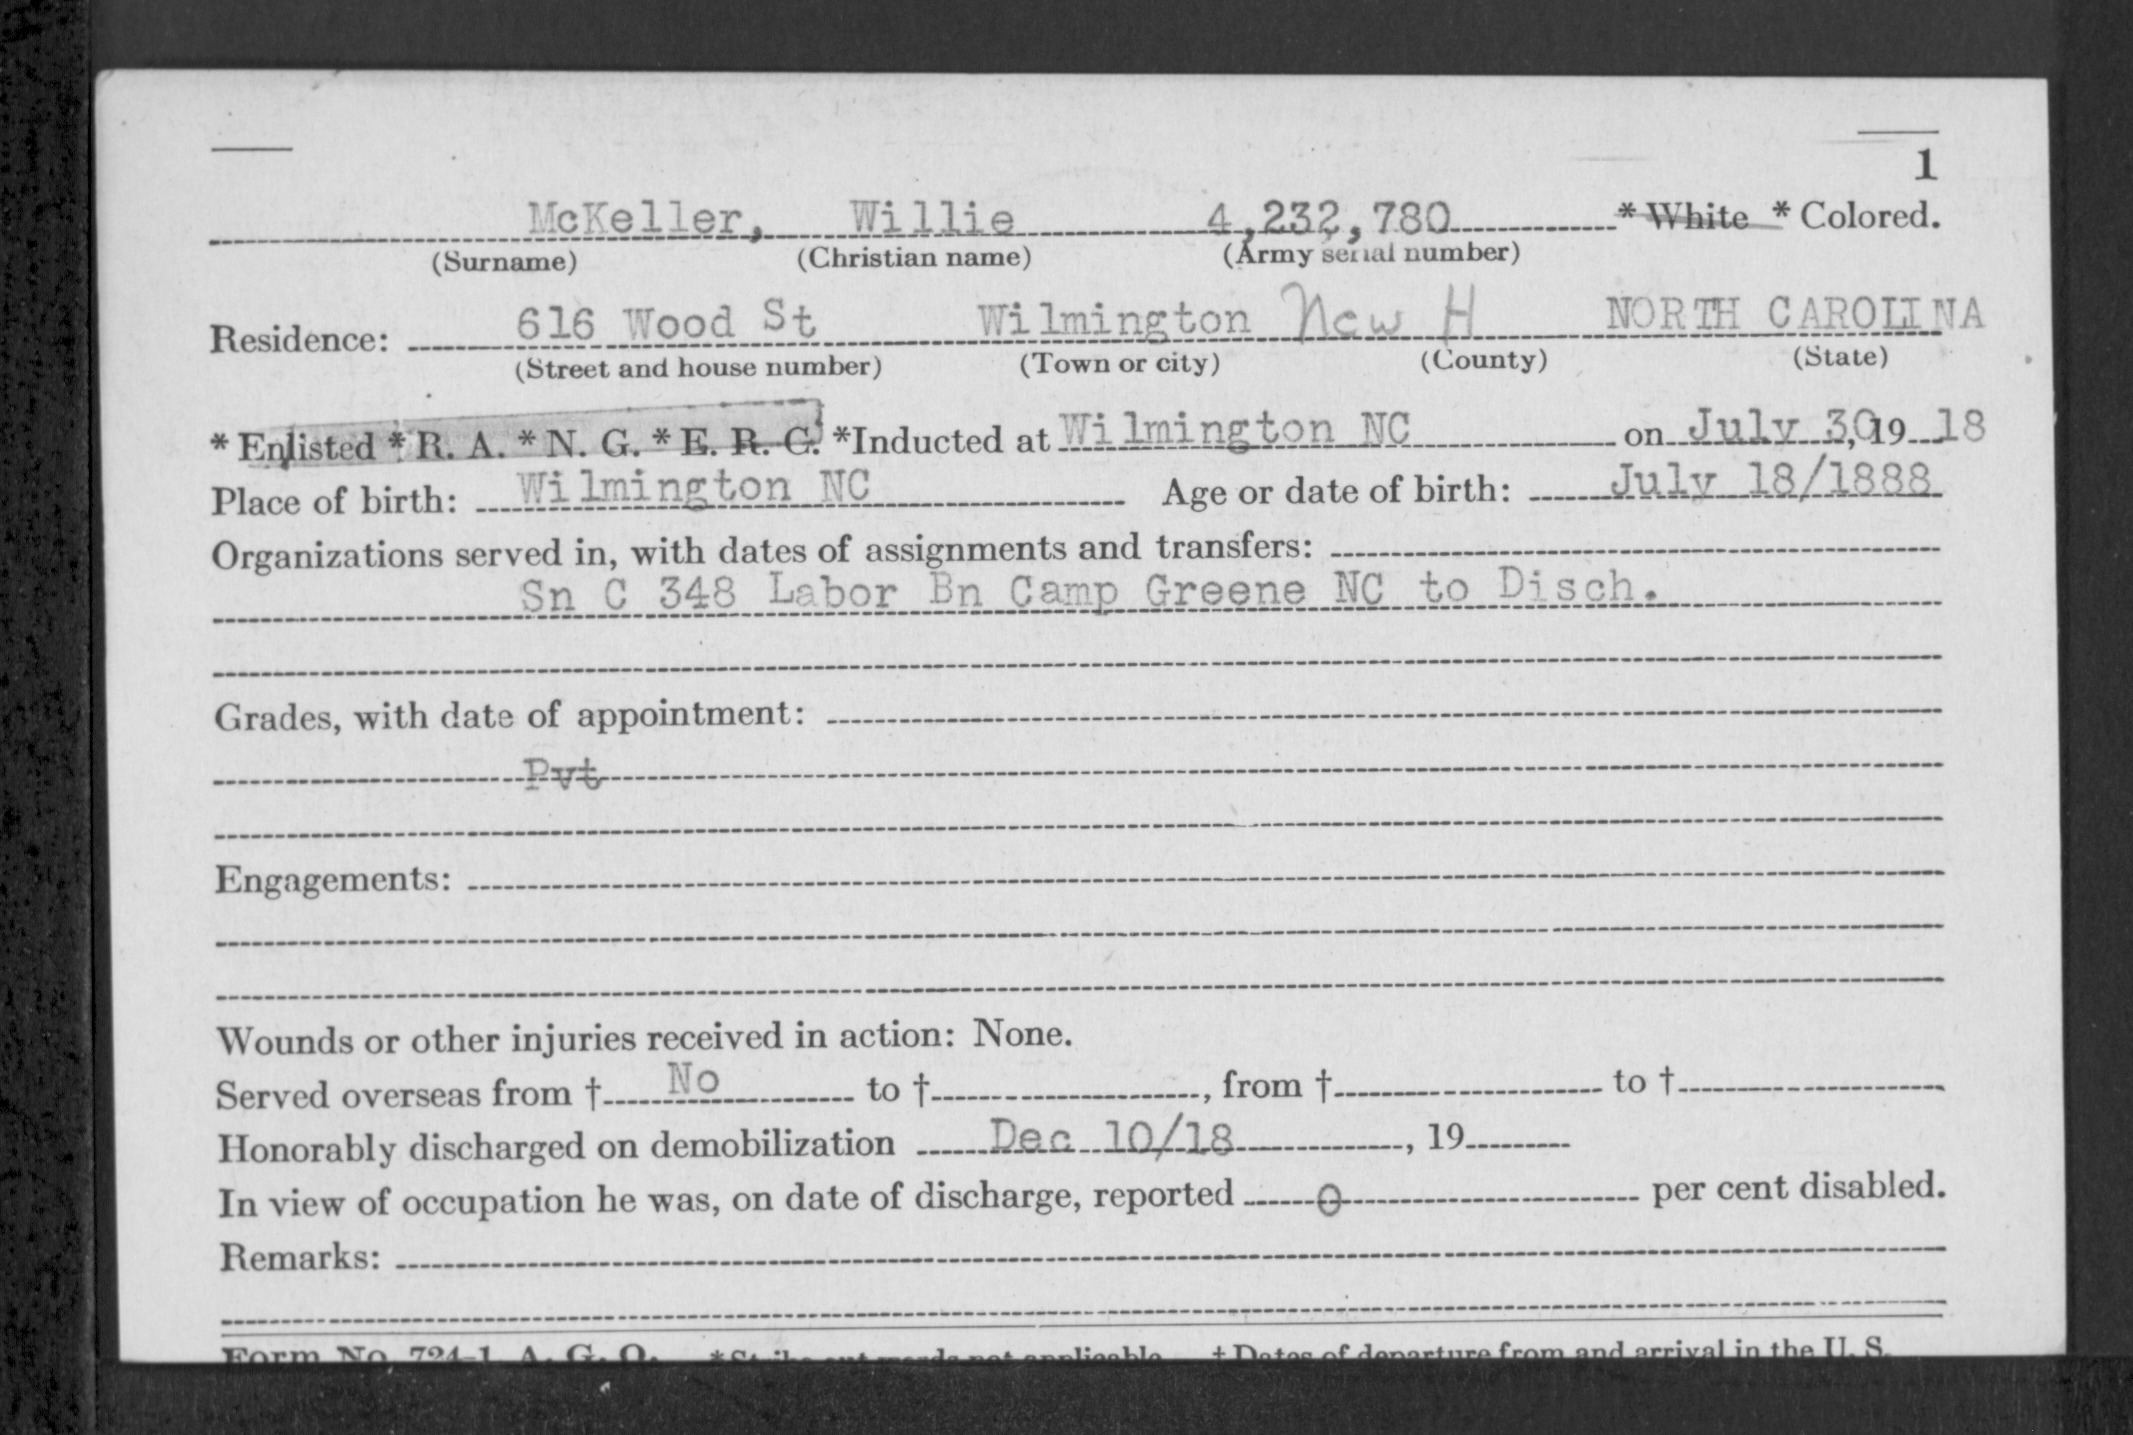 1
McKeller, Willie 4,232,780 * White * Colored.
(Surname) (Christian name) (Army serial number)
Residence: 616 Wood St Wilmington New H NORTH CAROLINA
(Street and house number) (Town or city) (County) (State)
* Enlisted * R. A. * N. G. * E. R. C. *Inducted at Wilmington NC on July 30, 19 18
Place of birth: Wilmington NC Age or date of birth: July 18/1888
Organizations served in, with dates of assignments and transfers:
Sn C 348 Labor Bn Camp Greene NC to Disch.
Grades, with date of appointment:
Pvt
Engagements:
Wounds or other injuries received in action: None.
Served overseas from † No to †, from † to †
Honorably discharged on demobilization Dec 10/18, 19
In view of occupation he was, on date of discharge, reported 0 per cent disabled.
Remarks:
Form No. 724-1, A. G. O. * Strike out words not applicable. † Dates of departure from and arrival in the U. S.